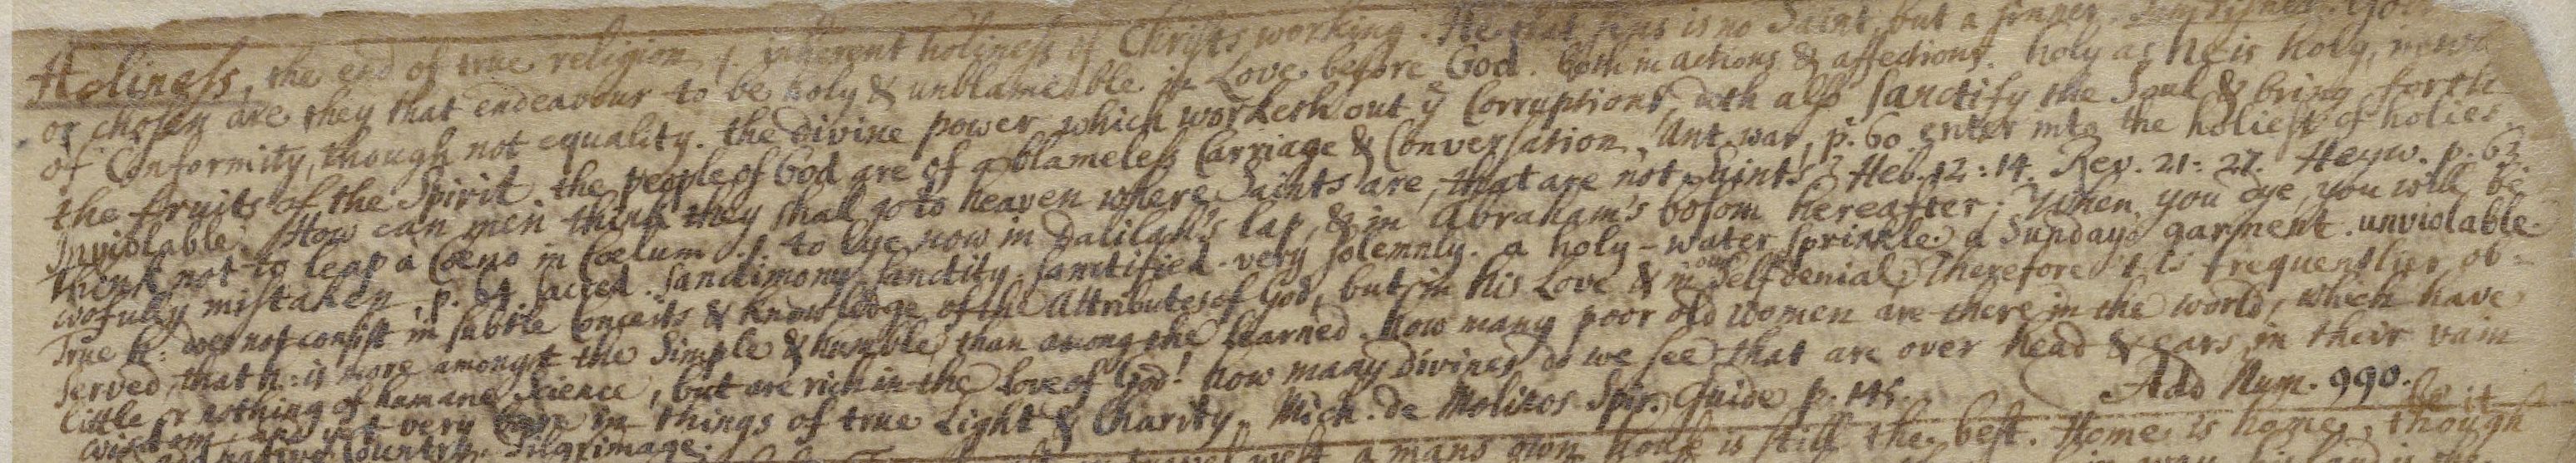 Holiness, the end of true religion, inherent holiness of Christs working. He that sins is no Saint, but a sinner.
or chosen are they that endeavour to be holy & unblameable in Love before God. both in actions & affections. holy as he is holy,
of Conformity, though not equality. the divine power which worketh out yͤ Corruptions, doth also sanctify the Soul & bring forth
the fruits of the Spirit. the people of God are of a blameless Carriage & Conversation. Ant. war, p. 60. enter into the holiest of holies.
Inviolable. How can men think they shall go to heaven where Saints are, that are not Saints? Heb. 12: 14. Rev. 21: 27. Heyw. p. 63.
think not to leap à Cœno in Cœlum. to lye now in Dalilah's lap, & in Abraham's bosom hereafter; When you dye, you will be
wofully mistaken, p. 64. sacred. sanctimony sanctity. sanctified. very solemnly. a holy-water sprinkle. a Sundays garment. unviolable.
True h: does not consist in subtle conceits & knowledge of the Attributes of God, but in his Love & in our Self denial. Therefore it is frequentlier ob=
served, that h: is more amongst the Simple & humble, than among the learned. How many poor old women are there in the world, which have
little or nothing of humane Science, but are rich in the Love of God! how many divines do we see that are over head & ears in their vain
wisdom, and yet very bare in things of true Light & Charity, Mich. de Molinos Spir. Guide p. 145. Add Num. 990.
native Country. Pilgrimage.
a mans own house is still the best. Home is home, though be it